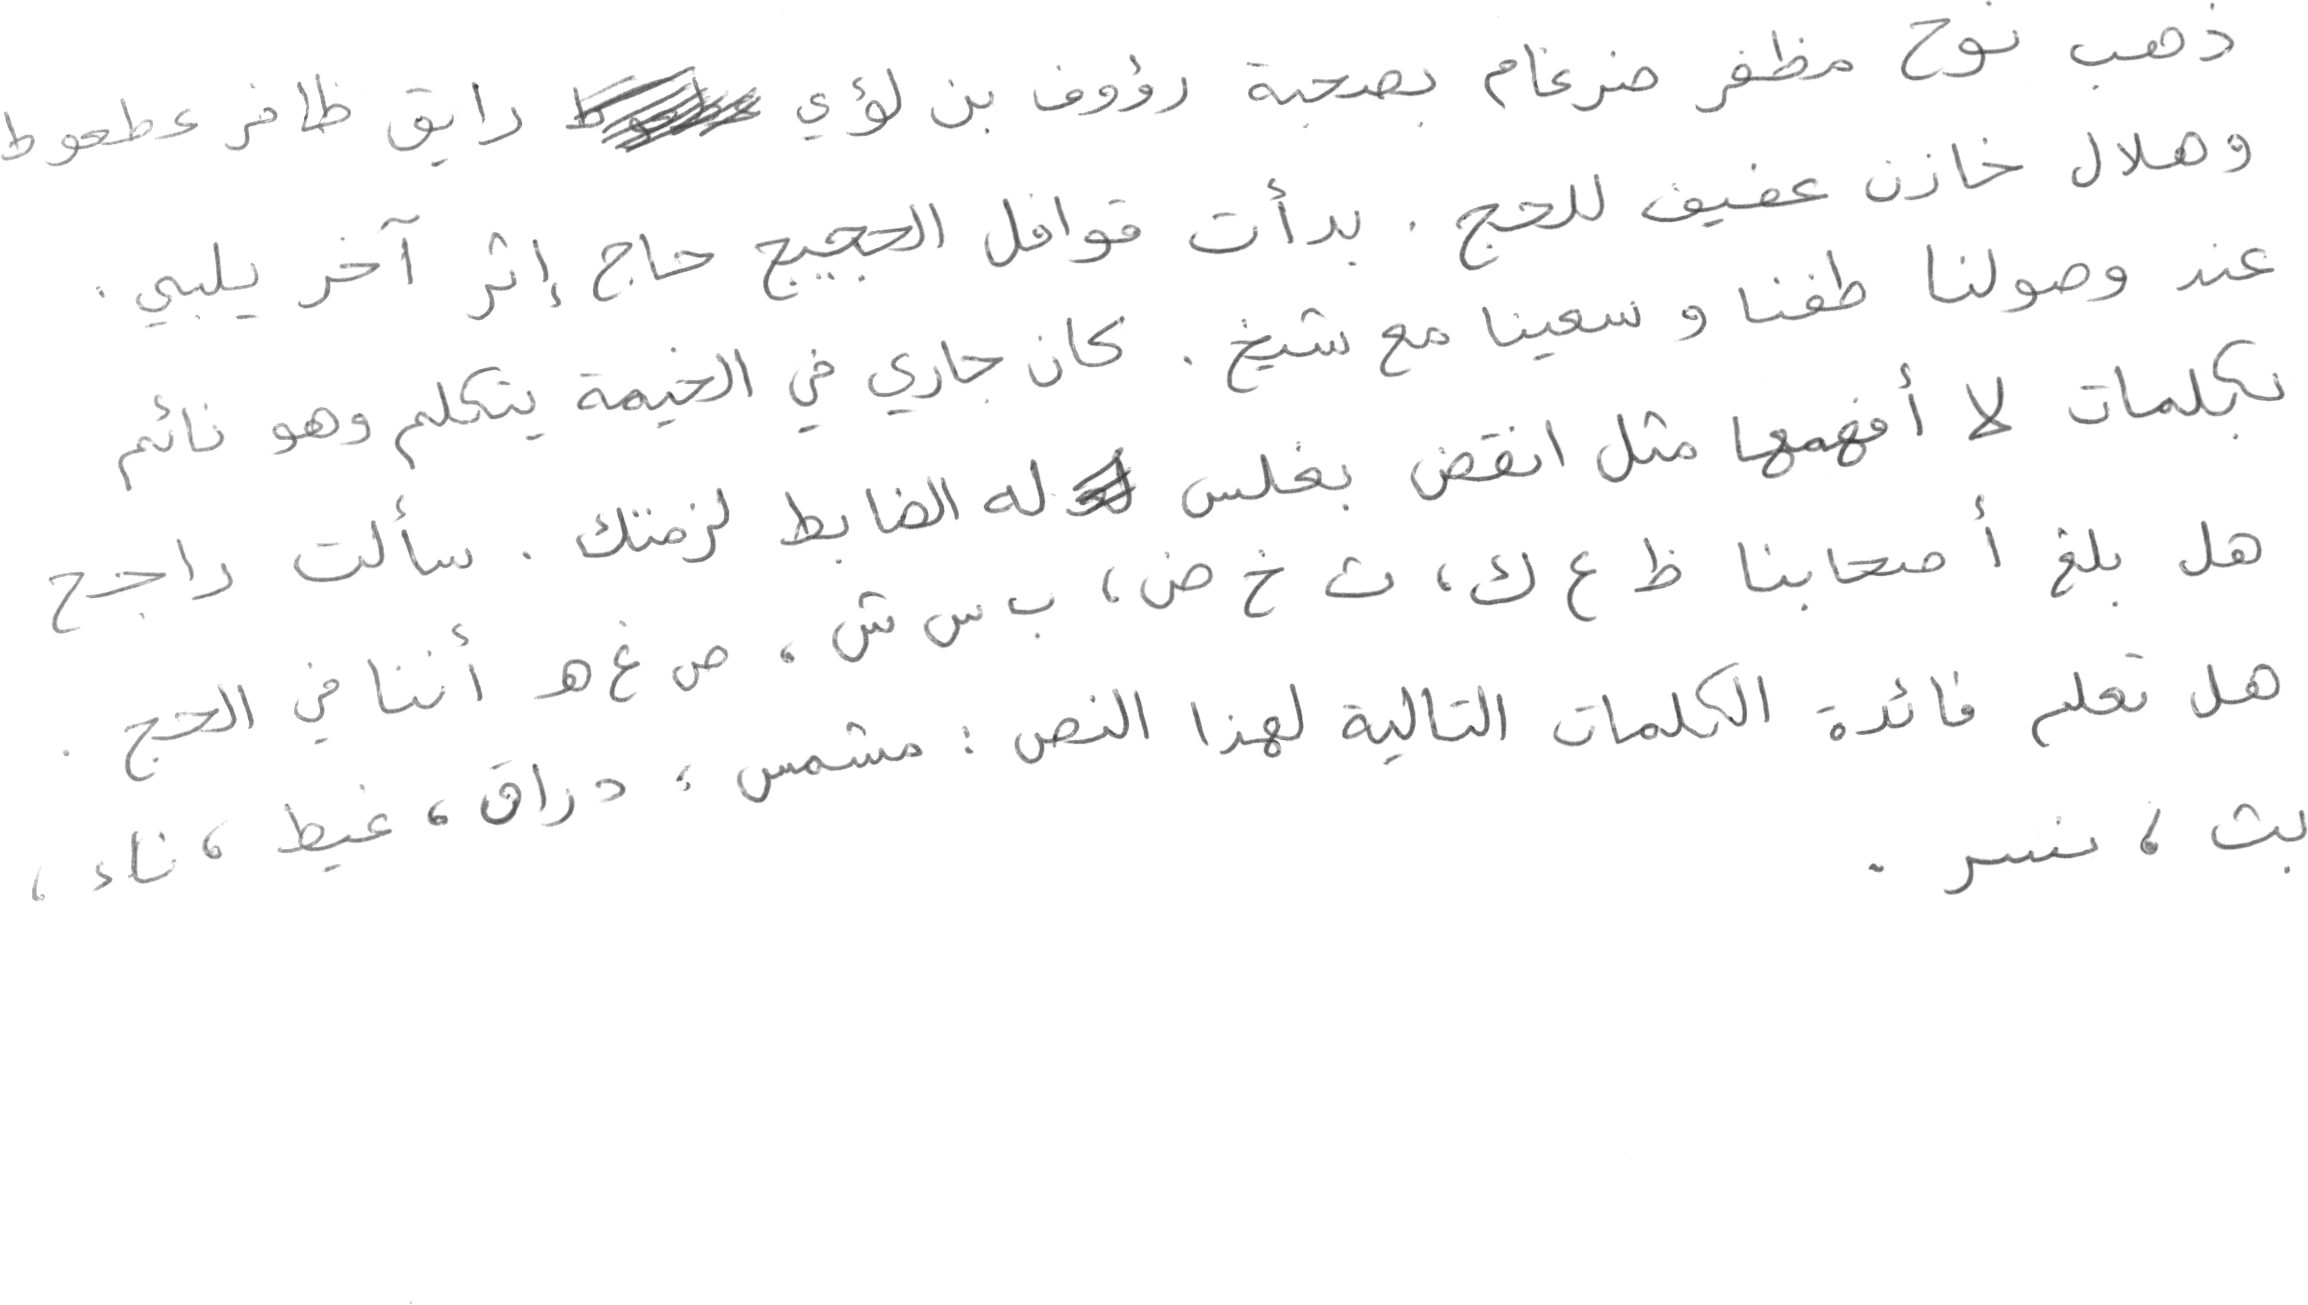 ذهب نوح مظفر ضرغام بصحبة رؤوف بن لؤي رايق ظافر عطعوط
وهلال خازن عفيف للحج . بدأت قوافل الحجيج حاج إثر آخر يلبي .
عند وصولنا طفنا و سعينا مع شيخ . كان جاري في الخيمة يتكلم وهو نائم
بكلمات لا أفهمها مثل انقض بغلس له الضابط لزمتك . سألت راجح
هل بلغ أصحابنا ظ ع ك، ث خ ض، ب س ش، ص غ هـ أننا في الحج .
هل تعلم فائدة الكلمات التالية لهذا النص : مشمس ، دراق ، غيط ، ناء ،
بث ، نسر .